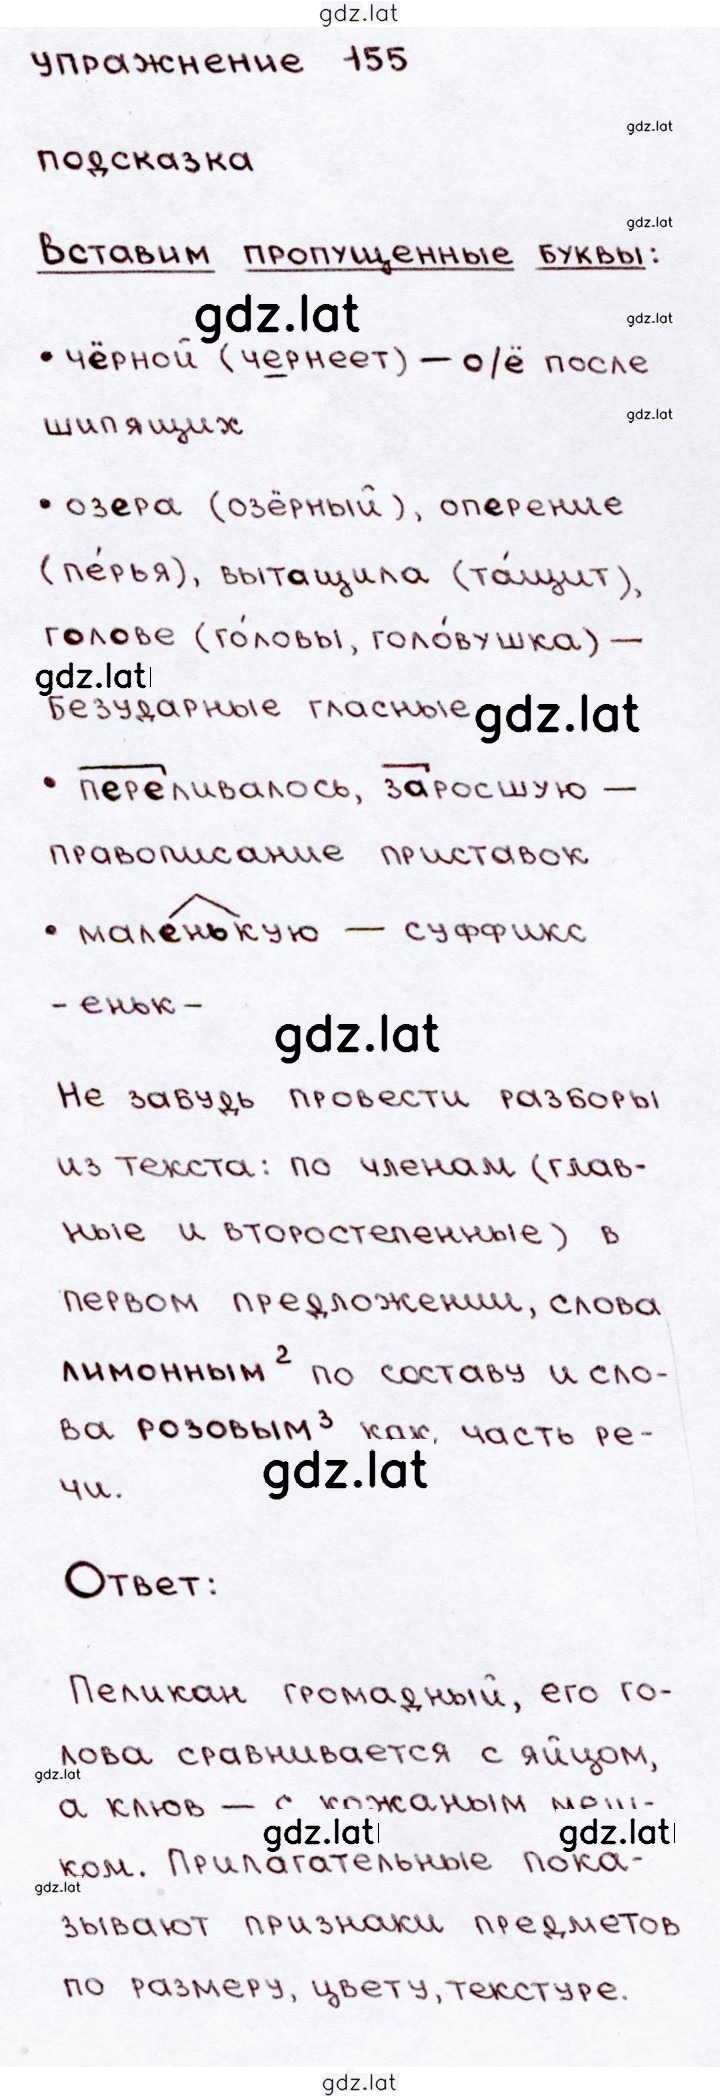 gdz.lat
упражнение 155
gdz.lat
подсказка
gdz.lat
Вставим пропущенные буквы:
gdz.lat
gdz.lat
• чёрной (чернеет) — о/ё после
gdz.lat
шипящих
• озера (озёрный), оперение
(пе́рья), вытащила (та́щит),
голове (го́ловы, голо́вушка) —
gdz.lat
безударные гласные
gdz.lat
• переливалось, заросшую —
правописание приставок
• маленькую — суффикс
-еньк-
gdz.lat
Не забудь провести разборы
из текста: по членам (глав-
ные и второстепенные) в
первом предложении, слова
лимонным² по составу и сло-
ва розовым³ как часть ре-
gdz.lat
чи.
Ответ:
Пеликан громадный, его го-
лова сравнивается с яйцом,
gdz.lat
а клюв — с кожаным меш-
gdz.lat gdz.lat
ком. Прилагательные пока-
gdz.lat
зывают признаки предметов
по размеру, цвету, текстуре.
gdz.lat